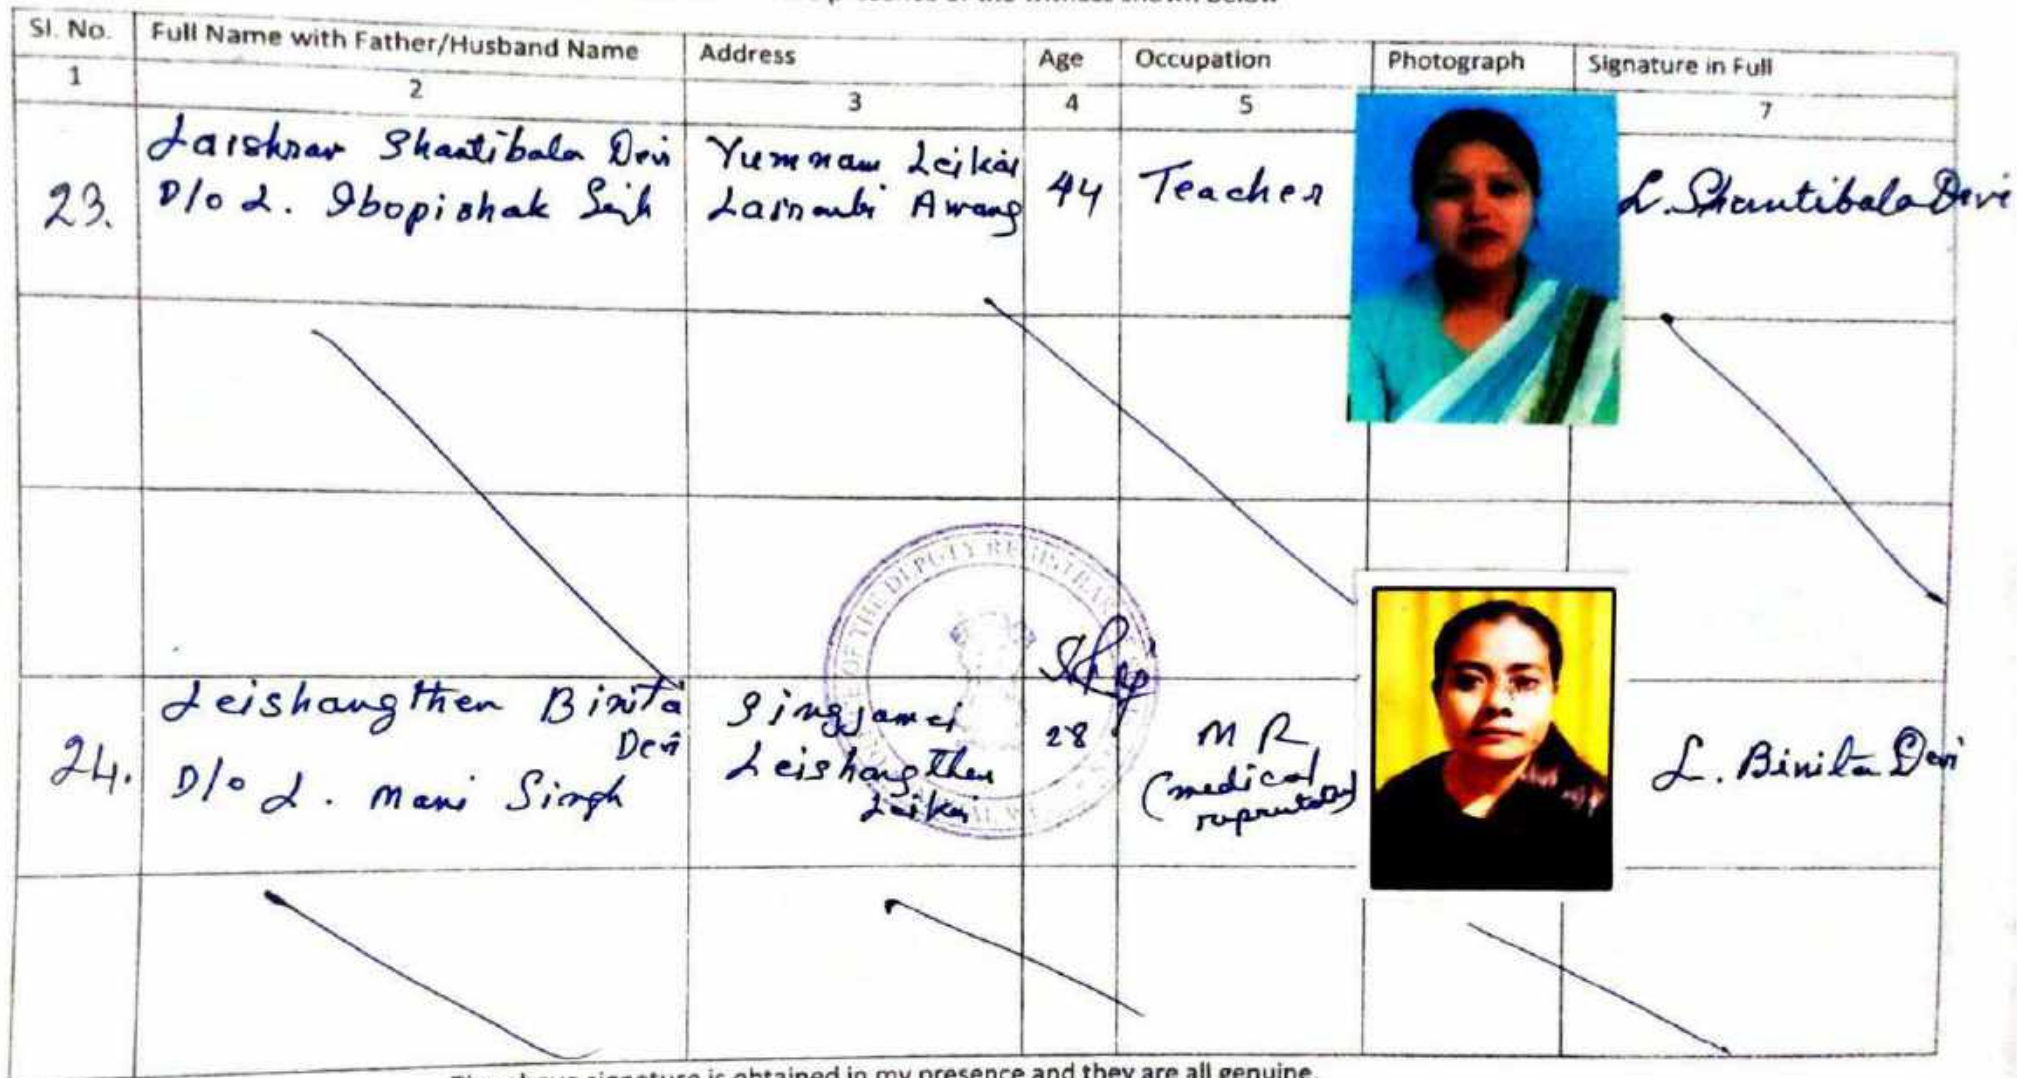 presence of the witness shown below
Sl. No. Full Name with Father/Husband Name Address Age Occupation Photograph Signature in Full
1 2 3 4 5 7
23. Laishram Shantibala Devi D/o L. Ibopishak Singh Yumnam Leikai Lairembi Awang 44 Teacher L. Shantibala Devi
OF THE DEPUTY REGISTRAR
24. Leishangthem Binita Devi D/o L. Mani Singh Singjamei Leishangthem Leikai 28 M R (medical L. Binita Devi
above signature is obtained in my presence and they are all genuine.